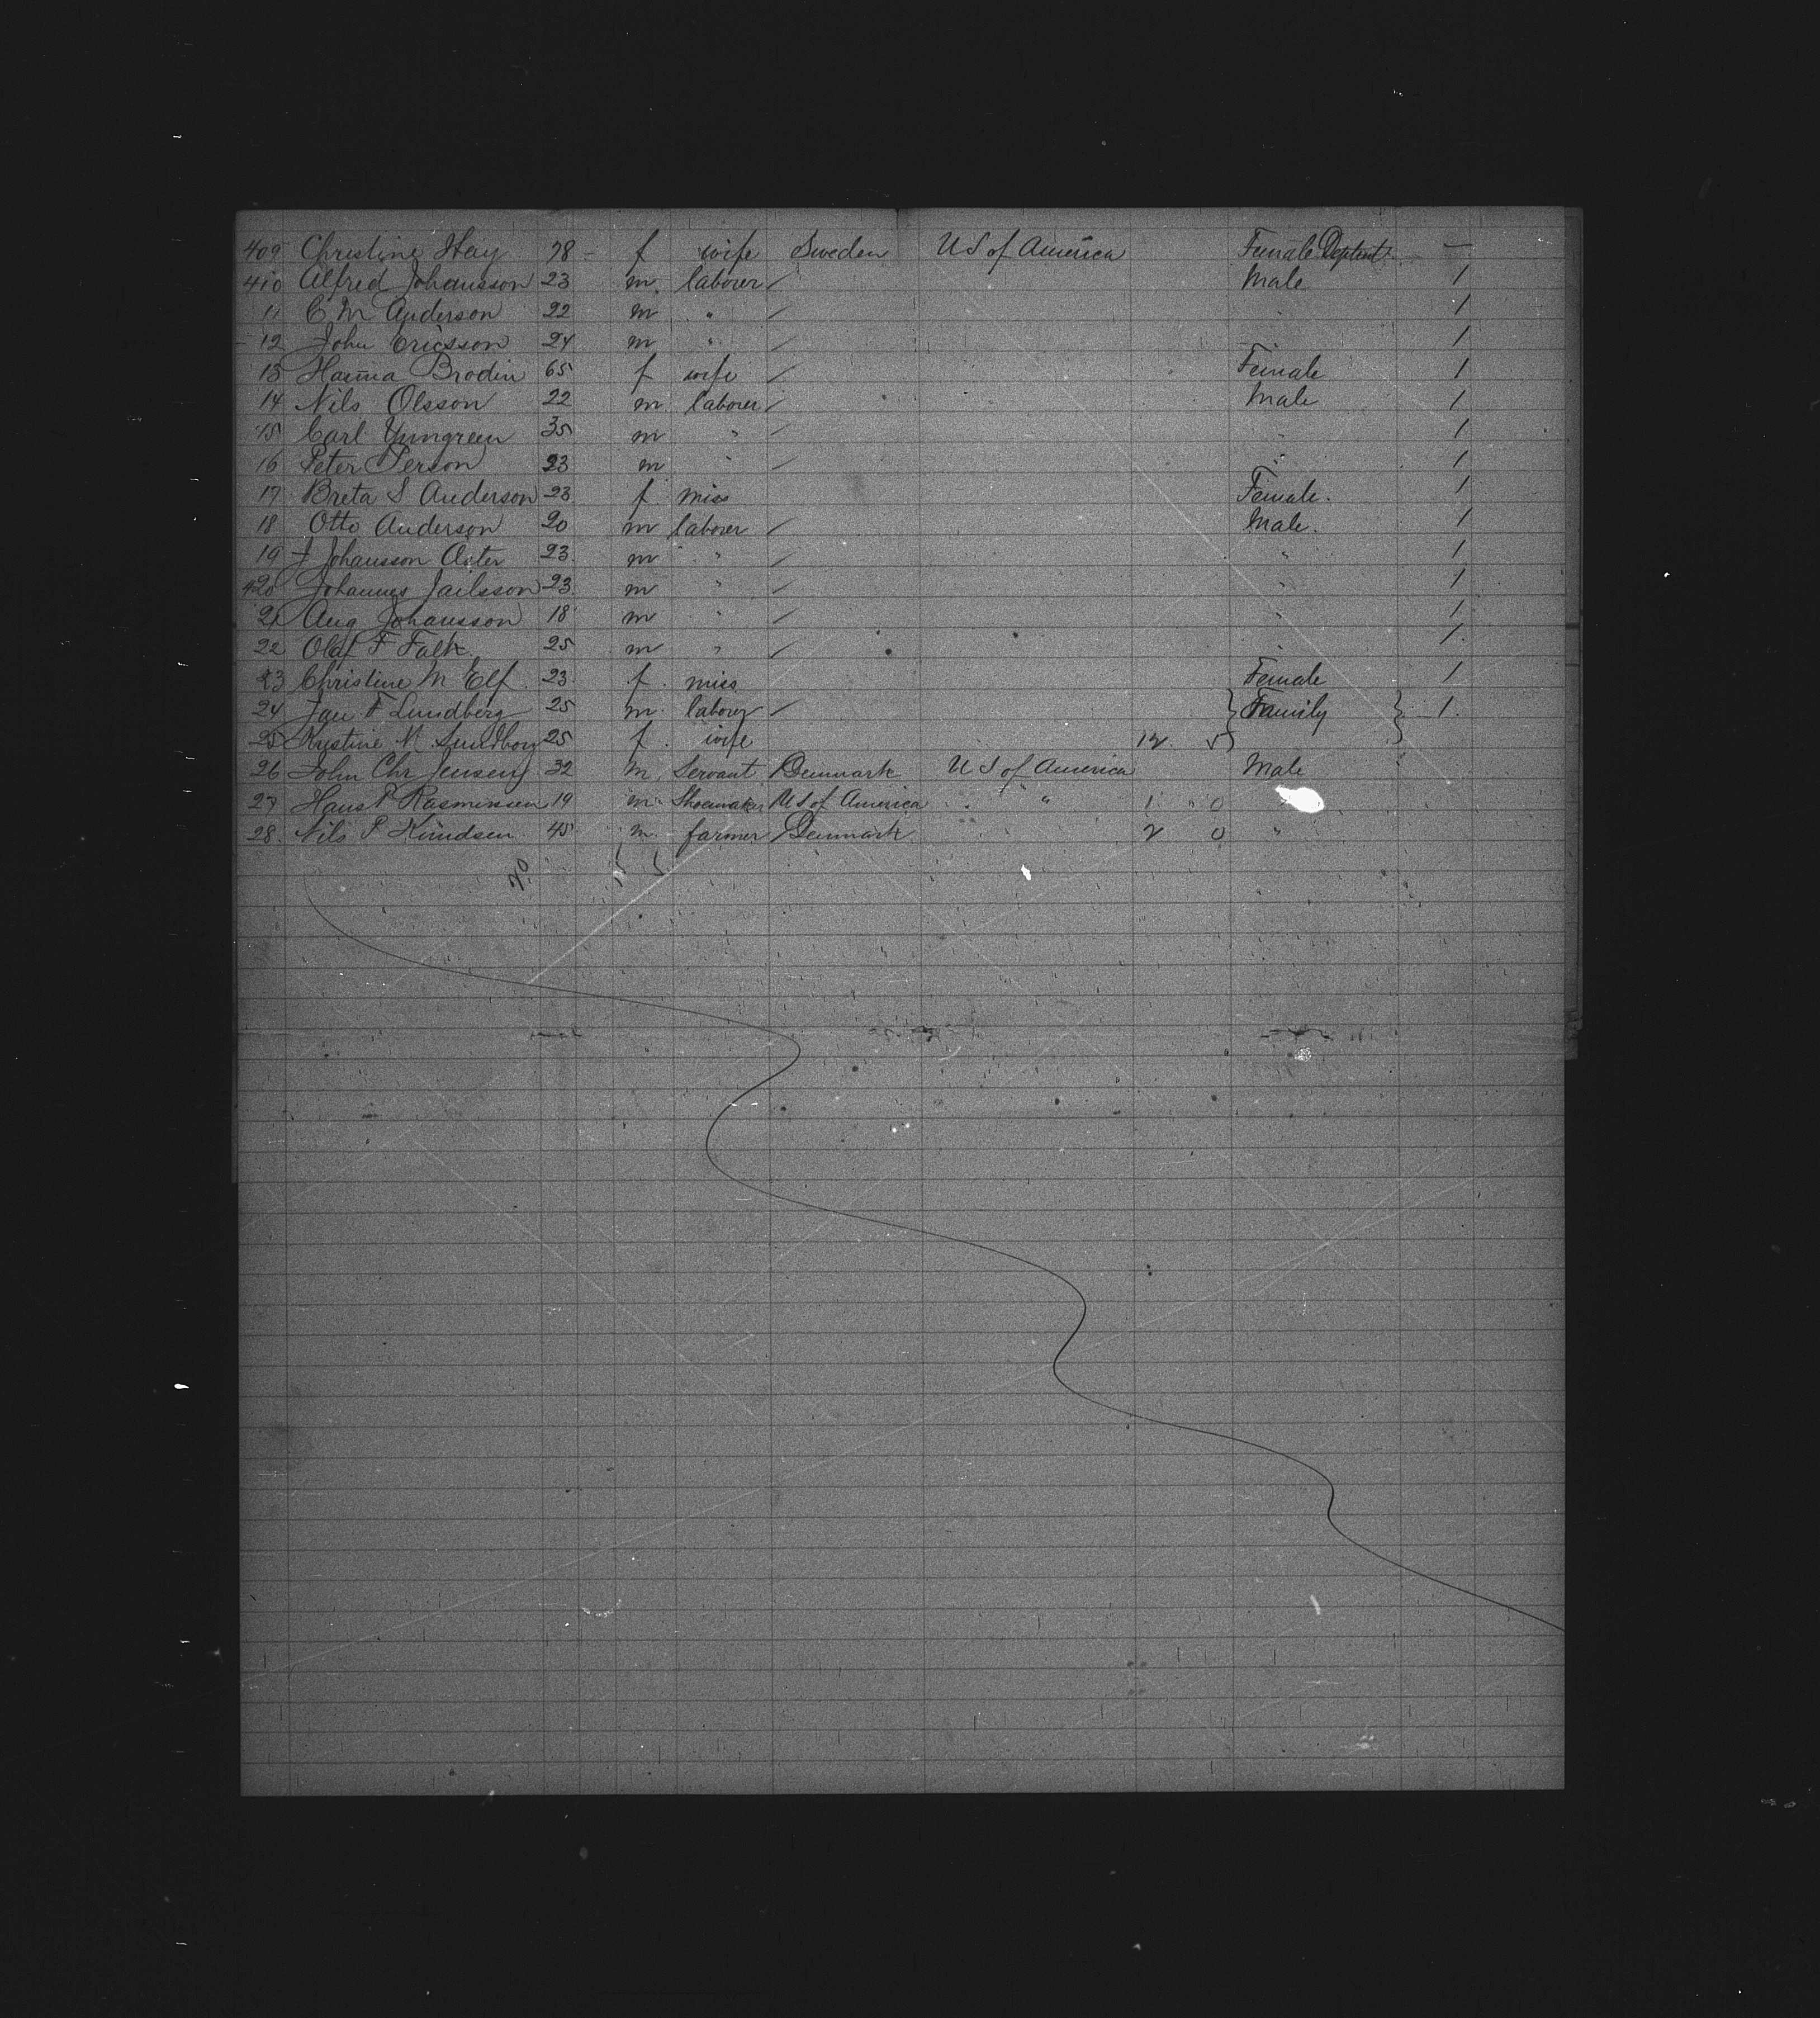 409 Christine Hay 78 - f wife Sweden U S of America Female Deptent. —
410 Alfred Johansson 23 m. laborer / Male 1
11 C M Anderson 22 m " / 1
12 John Ericsson 24 m " / 1
13 Hanna Brodin 65 f wife / Female 1
14 Nils Olsson 22 m laborer / Male 1
15 Carl Yungreen 35 m " / " 1
16 Peter Person 23 m " / " 1
17 Breta S Anderson 23 f miss Female. 1
18 Otto Anderson 20 m laborer / Male. 1
19 J Johansson 23 m " / " 1
420 Johannes 23 m " / " 1
21 Aug Johansson 18 m " / " 1
22 Olof F Falk 25 m " / " 1.
23 Christine M Elf 23 f. miss Female 1
24 Jan F Lundberg 25 m. laborer / Family 1.
25 Kristine M Lundborg 25 f. wife 12 5
26 John Chr Jensen 32 m. Servant Denmark U S of America Male
27 Hans P Rasmussen 19 m. Shoemaker U S of America " " 1 " 0
28. Nils P Knudsen 45 m. farmer Denmark 2 0 "